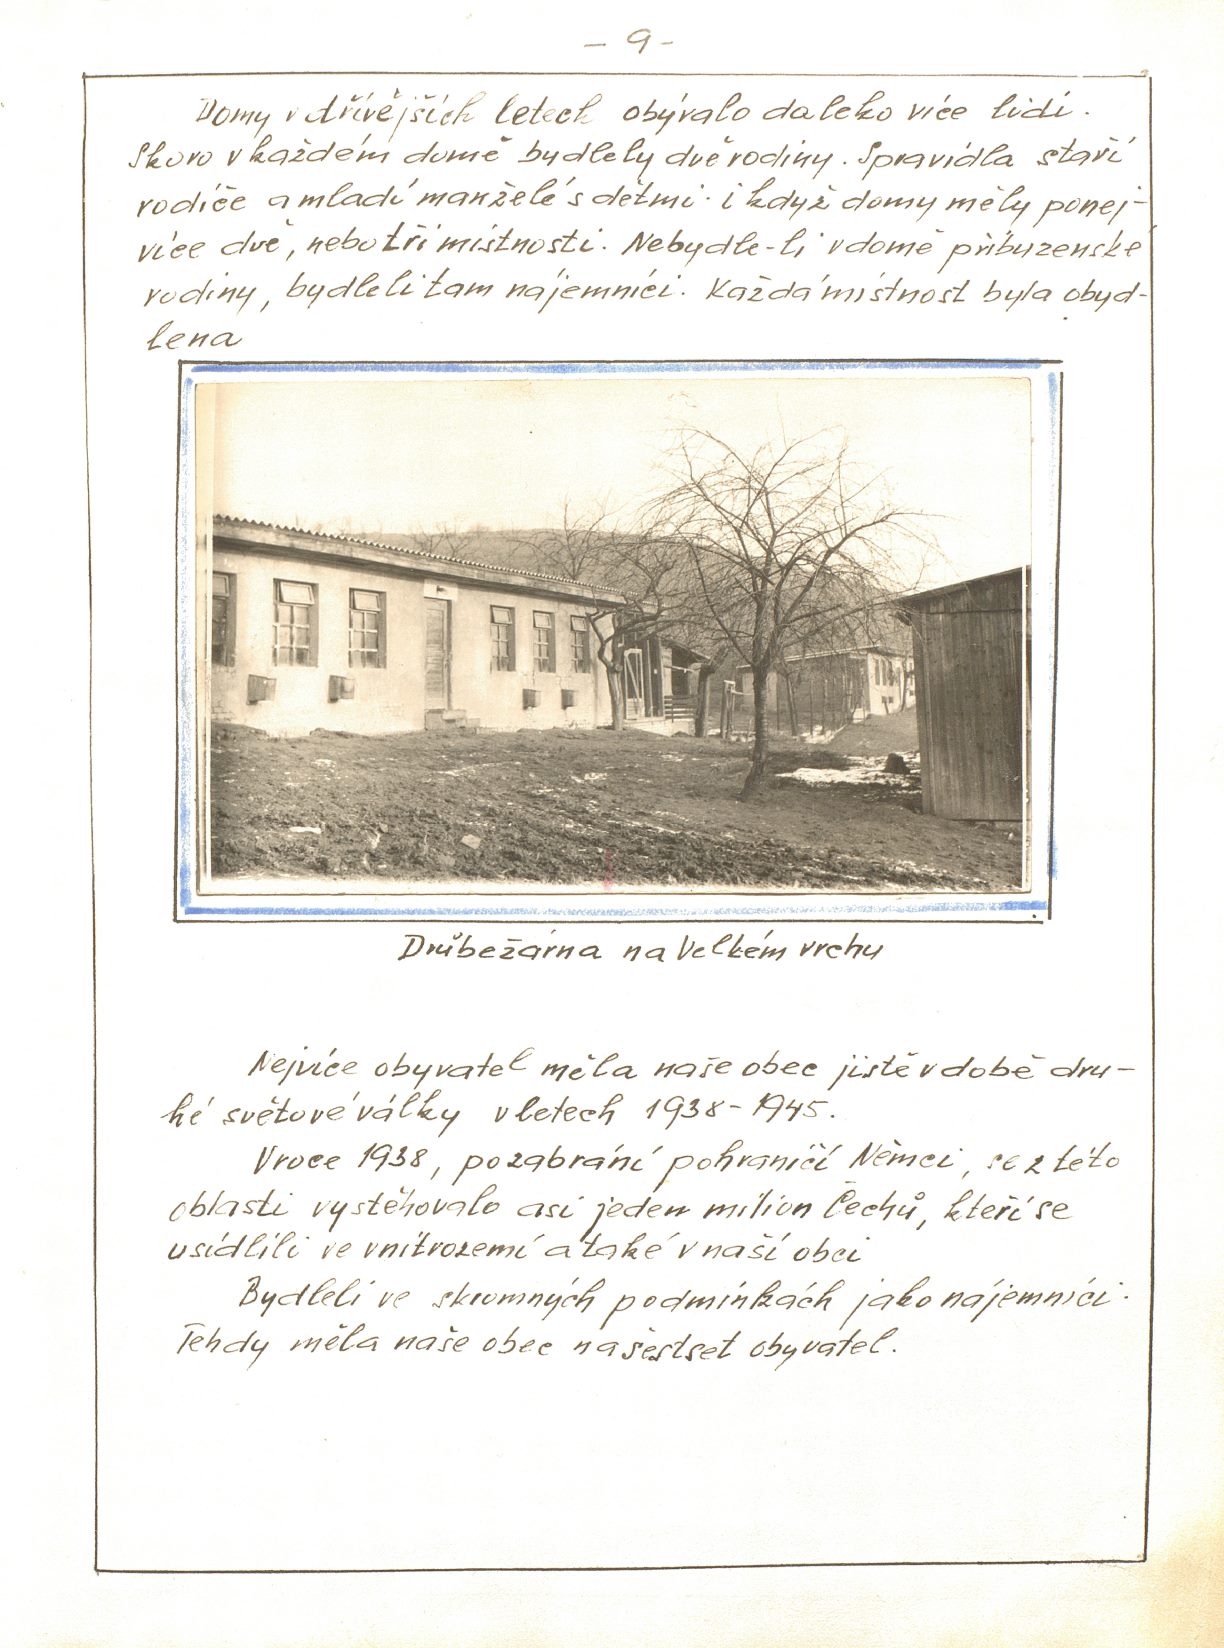 - 9 -
Domy v dřívějších letech obývalo daleko více lidí.
Skoro v každém domě bydlely dvě rodiny. Spravidla staří
rodiče a mladí manželé s dětmi. i když domy měly ponej-
více dvě, nebo tři místnosti. Nebydle-li v domě příbuzenské
rodiny, bydleli tam nájemníci. Každá místnost byla obyd-
lena
Drůbežárna na Velkém vrchu
Nejvíce obyvatel měla naše obec jistě v době dru-
hé světové války v letech 1938-1945.
V roce 1938, po zabrání pohraničí Němci, se z této
oblasti vystěhovalo asi jeden milion Čechů, kteří se
usídlili ve vnitrozemí a také v naší obci
Bydleli ve skromných podmínkách jako nájemníci.
Tehdy měla naše obec na šestset obyvatel.